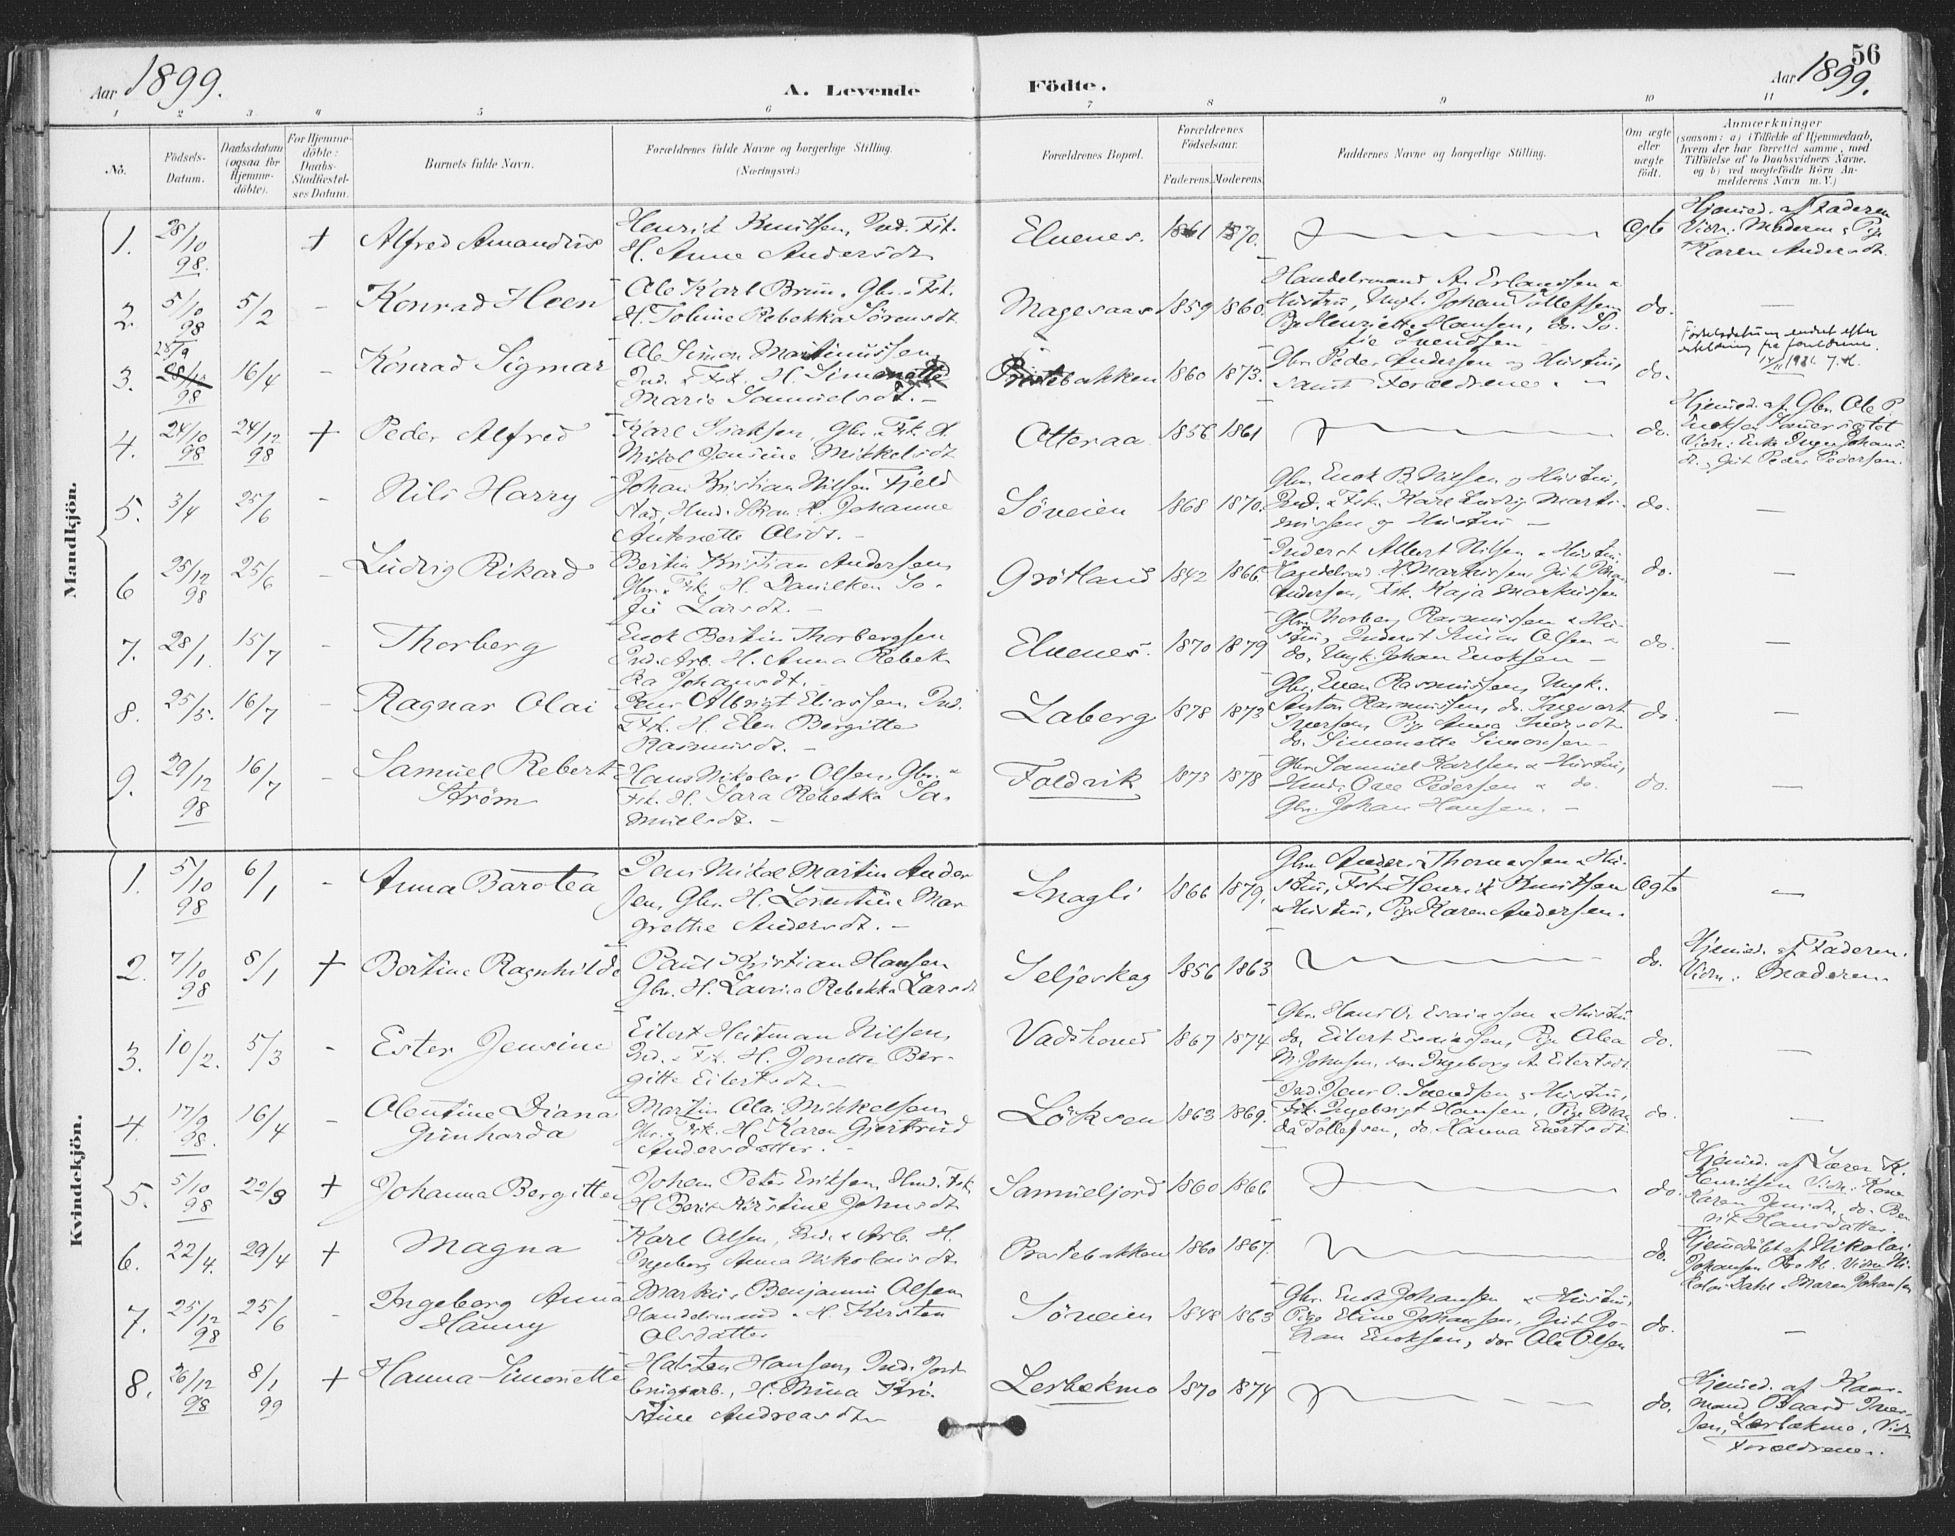 56
Aar 1899.
A. Levende Födte.
Aar 1899.
1 2 3 4 5 6 7 8 9 10 11
No.
Födsels-Datum.
Daabsdatum (ogsaa for Hjemmedöbte).
For Hjemmedöbte: Daabs-Stadfæstelses Datum.
Barnets fulde Navn.
Forældrenes fulde Navne og borgerlige Stilling.
(Næringsvei.)
Forældrenes Bopæl.
Forældrenes Födselsaar.
Faderens. Moderens.
Faddernes Navne og borgerlige Stilling.
Om ægte eller uægte födt.
Anmærkninger
(saasom: a) i Tilfælde af Hjemmedaab, hvem der har forrettet samme, med Tilföielse af to Daabsvidners Navne. og b) ved uægtefödte Börn Anmelderens Navn m. V.)
Mandkjön.
1. 28/10 98. + Alfred Amandus
Henrik Knutsen, Ind. Fsk.
H. Anne Andersdt.
Elvenes. 1861 1870.
Ægte
Hjemmed. af Faderen
Vidn. Moderen, Pige
Karen Andersdt.
2. 5/10 98 5/2 - Konrad Hoen
Ole Karl Bruun. Gbr. Fsk.
H. Tobine Rebekka Sörensdt.
Magesaas 1859 1860.
Handelsmand A. Erlandsen &
Hustru, Ungk. Johan Tollefsen,
Pige Henriette Hansen, do. So-
fie Svendsen
do. —
3. 28/9 28/12 98 16/4 - Konrad Sigmar
Ole Simon Martinussen,
Ind. & Fsk. H. Simonette
Marie Samuelsdt. -
Prestebakken 1860 1873.
Gbr. Peder Andersen og Hustru,
samt Forældrene.
do.
Födselsdatum endret efter
erklæring fra foreldrene.
4. 24/10 98 24/12 98 + Peder Alfred
Karl Isaksen, Gbr. & Fsk. H.
Mikol Jensine Mikkelsdt
Otteraa 1856 1861
do.
Hjemmed. af Gbr. Ole P.
5. 3/4 25/6 - Nils Harry
Johan Kristian Nilsen Fjeld
stad, H. Johanne
Antonette Olsdt. -
Söveien 1868 1870.
Gbr. Enok B. Nilsen og Hustru,
Ind. & Fsk. Karl Ludvig Marti-
nussen og Hustru —
do. —
6 25/12 98 25/6 - Ludvig Rikard
Bertin Kristian Andersen,
Gbr. & Fsk. H. Danilken So-
fie Larsdt. -
Grötland 1842 1866.
Inderst Albert Nilsen & Hustru
Andersen, Fsk. Kaja Markussen
do. —
7. 28/1. 15/7 - Thorberg
Enok Bertin Thorbergsen
Ind. Arb. H. Anna Rebek
ka Johansdt. -
Elvenes. 1870 1879
Gbr. Thorberg Rasmussen & Hu-
stru, Inderst Simon Olsen &
do. Ungk. Johan Enoksen —
do. —
8. 25/5. 16/7 - Ragnar Olai
Peder Albrigt Eliassen, Ind.
Fsk. H. Elen Bergitte
Rasmusdt. -
Laberg 1878 1873
Gbr. Even Rasmussen, Ungk.
Anton Rasmussen, do. Ingvart
Iversen, Pige Anna Iversdt.
do. Simonette Simonsen -
do. —
9. 29/12 98 16/7 - Samuel Rebert
Ström
Hans Nikolai Olsen, Gbr. &
Fsk. H. Sara Rebekka Sa-
muelsdt. -
Foldvik 1873 1878
Gbr. Samuel Karlsen & Hustru,
Hmd. Ove Pedersen & do.
Gbr. Johan Hansen. -
do. —
Kvindekjön.
1. 5/10 98 6/1 - Anna Barotea
Jens Mikal Martin Ander
sen, Gbr. H. Lorentine Mar
grethe Andersdt. -
Snagli 1866 1879.
Gbr. Anders Thomassen & Hu-
stru, Fsk. Henrik Knutsen
& Hustru, Pige Karen Andersen.
Ægte —
2. 7/10 98 8/1 + Bertine Ragnhilde
Paul Kristian Hansen
Gbr. H. Lavina Rebekka Larsdt
Seljeskog 1856 1863
do.
Hjemmed. af Faderen.
Vidn. Moderen
3. 10/2. 5/3 - Ester Jensine
Eilert Heitman Nilsen,
Ind. & Fsk. H. Jonetta Ber-
gitte Eilertsdt.
Vadshoved 1867 1874
Gbr. Hans O. Esaiassen & Hustru
do. Eilert Esaiassen, Pige Olea
M. Johnsen, do. Ingeborg A. Eilertsdt
do. —
4. 17/9 98. 16/4 - Olentine Diana
Gunharda
Martin Olai Mikkelsen,
Gbr. & Fsk. H. Karen Gjertrud
Andersdatter. -
Löksen 1863 1869.
Ind. Jens O. Svendsen & Hustru,
Fsk. Ingebrigt Hansen, Pige Man
da Tollefsen, do. Hanna Evertsdt
do. —
5. 5/10 98 22/3 + Johanna Bergitte
Johan Peter Eriksen, Hmd. Fsk.
H. Berit Kirstine Johnsdt
Samueljord 1860 1866
do.
Hjemmed. af Lærer K.
Henriksen Vidn. Kone
Karen Jensdt, do. Be-
rit Hansdatter
6. 22/4. 29/4 + Magna
Karl Olsen, Ind. & Arb. H.
Ingeborg Anna Nikolaisdt.
Prestebakken 1860 1867.
do.
Hjemmedöbt af Nikolai
Johansen Vidn. Ni-
kolai Dahl & Maren Johansen
7. 25/12 98 25/6 - Ingeborg Anna
Hanny
Markus Benjamin Olsen
Handelsmand & H. Kirsten
Olsdatter
Söveien 1848 1863
Gbr. Enok Johansen & Hustru,
Pige Eline Johansen, Gut Jo-
han Enoksen, do. Ole Olsen
do. —
8. 26/12 98 8/1 99 + Hanna Simonette
Halsten Hansen, Ind. Jord
brugsarb., H. Mina Kri-
stine Andreasdt
Lerbekmo 1870 1874
do.
Hjemmed. af Kaar-
mand Baard Iver-
sen, Lerbekmo, Vidn
Forældrene.